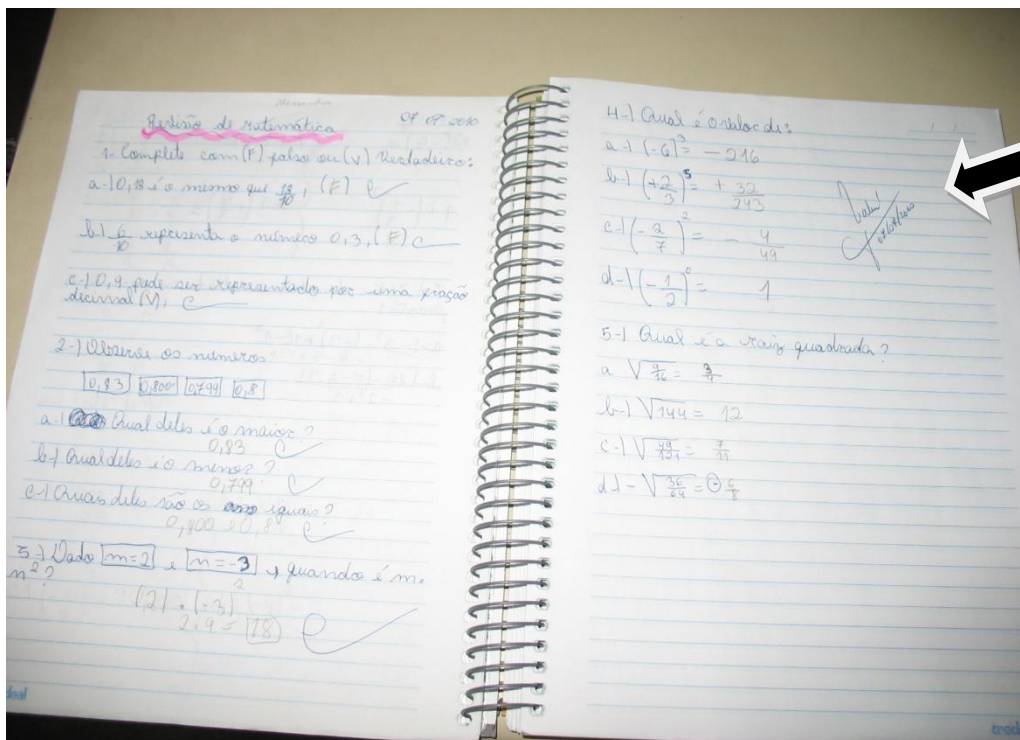 Revisão de matemática
07 07 2010
1- Complete com (F) falso ou (V) Verdadeiro:
a-) 0,18 é o mesmo que 18/10, (F) C
b-) 6/10 representa o número 0,3, (F) C
c-) 0,9 pode ser representado por uma fração
decimal (V), C
2-) Observe os números
0,83 0,800 0,799 0,8
a-) Qual deles é o maior?
0,83 C
b-) Qual deles é o menor?
0,799 C
c-) Quais deles são os iguais?
0,800 e 0,8 C
3-) Dado m=2 e n=-3, quando é m.
n²?
(2) . (-3)²
2.9 = 18 C
deal
4-) Qual é o valor de:
a-) (-6)³ = - 216
b-) (+2/3)⁵ = + 32/243
c-) (-2/7)² = - 4/49
d-) (-1/2)⁰ = 1
07/07/2010
5-) Qual é a raiz quadrada?
a √9/16 = 3/4
b-) √144 = 12
c-) √49/121 = 7/11
d-) - √36/64 = - 6/8
tred